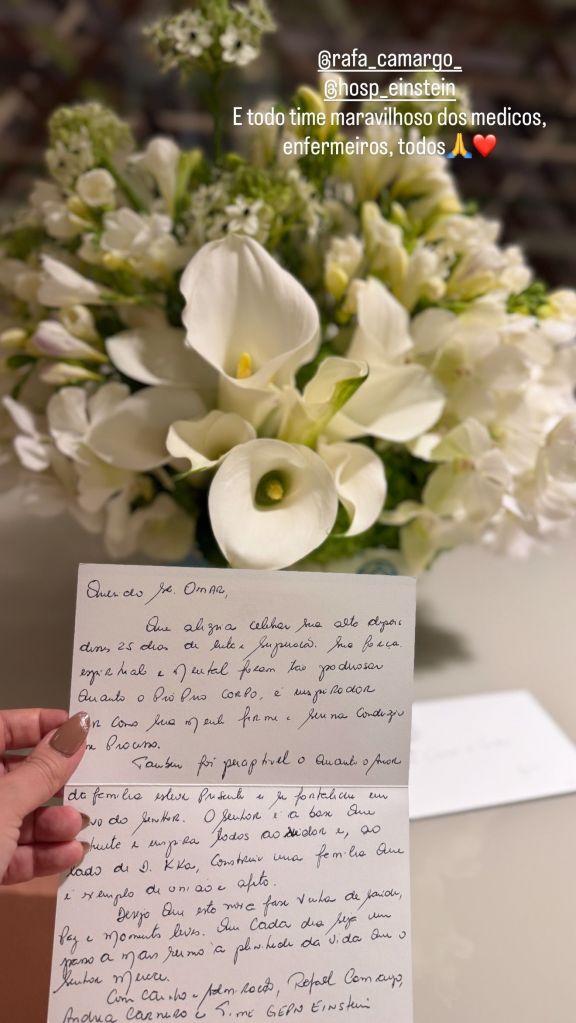 @rafa_camargo_
@hosp_einstein
E todo time maravilhoso dos medicos,
enfermeiros, todos🙏❤️
Querido Sr. OMAR,
Que alegria celebrar sua alta depois
desses 25 dias de luta e superação. Sua força
espiritual e mental foram tão poderosas
Quanto o PRÓPRIO CORPO, é inspirador
como sua mente firme e serena conduziu
Processo.
Também foi perceptível o Quanto o Amor
da família esteve Presente e se fortaleceu em
do Senhor. O Senhor é a base Que
e inspira todos ao redor e, ao
lado de D. KKa, construiu uma família Que
é exemplo de união e afeto.
Desejo Que esta nova fase venha de saúde,
Paz e momentos leves. Que Cada dia seja um
passo a mais rumo à plenitude da vida Que o
Senhor Merece.
Com carinho e Admiração, Rafael Camargo,
Andrea CARNEIRO e TIME GEPN EINSTEIN